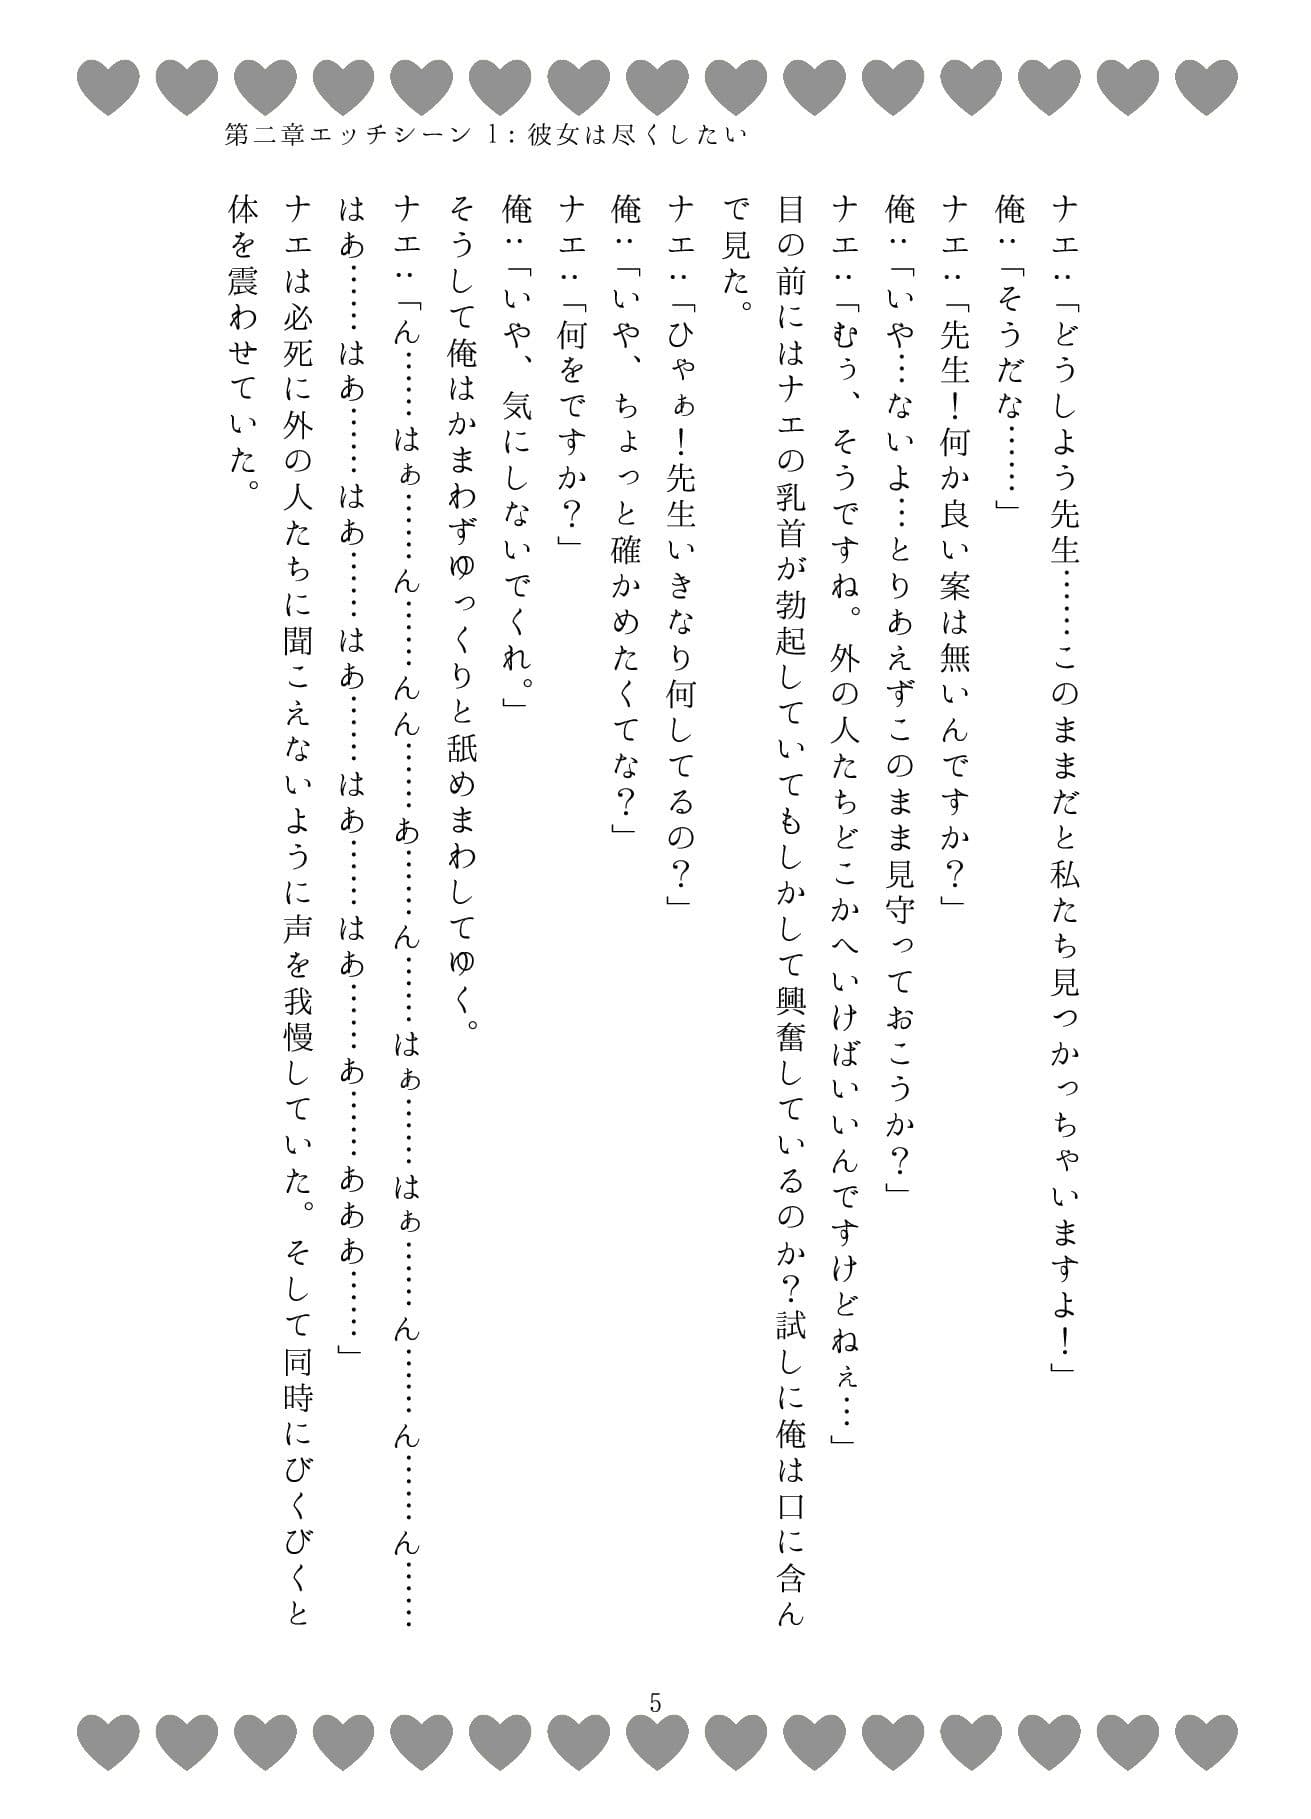 第二章エッチシーン 1: 彼女は尽くしたい
ナエ：「どうしよう先生……このままだと私たち見つかっちゃいますよ！」
俺：「そうだな……」
ナエ：「先生！何か良い案は無いんですか？」
俺：「いや…ないよ…とりあえずこのまま見守っておこうか？」
ナエ：「むぅ、そうですね。外の人たちどこかへいけばいいんですけどねぇ…」
目の前にはナエの乳首が勃起していてもしかして興奮しているのか？試しに俺は口に含ん
で見た。
ナエ：「ひゃぁ！先生いきなり何してるの？」
俺：「いや、ちょっと確かめたくてな？」
ナエ：「何をですか？」
俺：「いや、気にしないでくれ。」
そうして俺はかまわずゆっくりと舐めまわしてゆく。
ナエ：「ん……はぁ……ん……んん……あ……ん……はぁ……はぁ……ん……ん……ん……
はあ……はあ……はあ……はあ……はあ……はあ……あ……あああ……」
ナエは必死に外の人たちに聞こえないように声を我慢していた。そして同時にびくびくと
体を震わせていた。
5